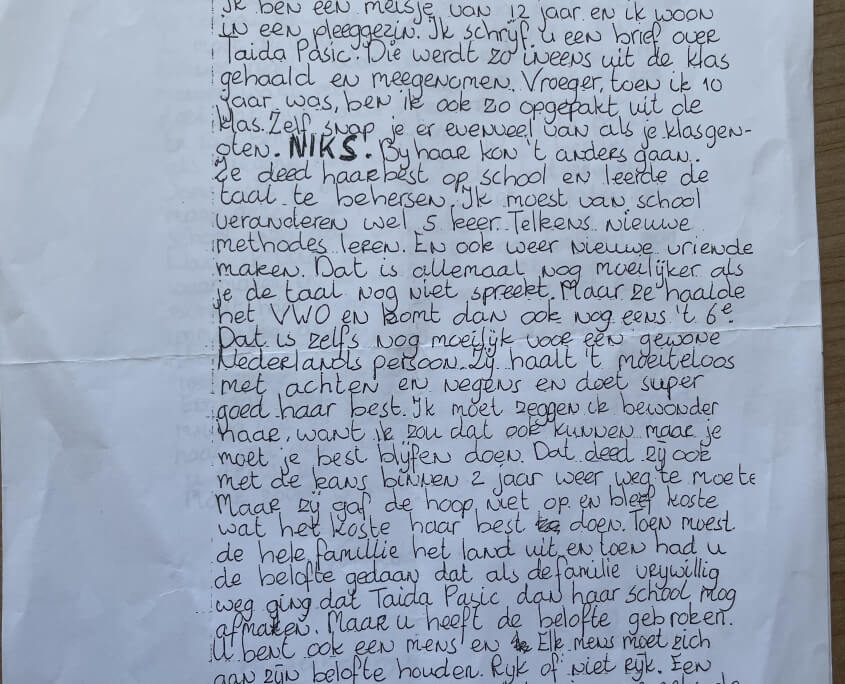 Ik ben een meisje van 12 jaar en ik woon
in een pleeggezin. Ik schrijf u een brief over
Taida Pasic. Die werdt zo ineens uit de klas
gehaald en meegenomen. Vroeger, toen ik 10
jaar was, ben ik ook zo opgepakt uit de
klas. Zelf snap je er evenveel van als je klasgen-
oten. NIKS. By haar kon 't anders gaan.
Ze deed haar best op school en leerde de
taal te behersen. Ik moest van school
veranderen wel 5 keer. Telkens nieuwe
methodes leren. En ook weer nieuwe vriende
maken. Dat is allemaal nog moeilijker als
je de taal nog niet spreekt. Maar ze haalde
het VWO en komt dan ook nog eens 't 6e.
Dat is zelfs nog moeilijk voor een gewone
Nederlands persoon. Zij haalt 't moeiteloos
met achten en negens en doet super
goed haar best. Ik moet zeggen ik bewonder
haar, want ik zou dat ook kunnen maar je
moet je best blijfen doen. Dat deed zij ook
met de kans binnen 2 jaar weer weg te moete
Maar zij gaf de hoop niet op en bleef koste
wat het koste haar best doen. Toen moest
de hele famillie het land uit en toen had u
de belofte gedaan dat als de familie vrywillig
weg ging dat Taida Pasic dan haar school mog
afmaken. Maar u heeft de belofte gebroken.
U bent ook een mens en Elk mens moet zich
aan zijn belofte houden. Ryk of niet ryk. Een